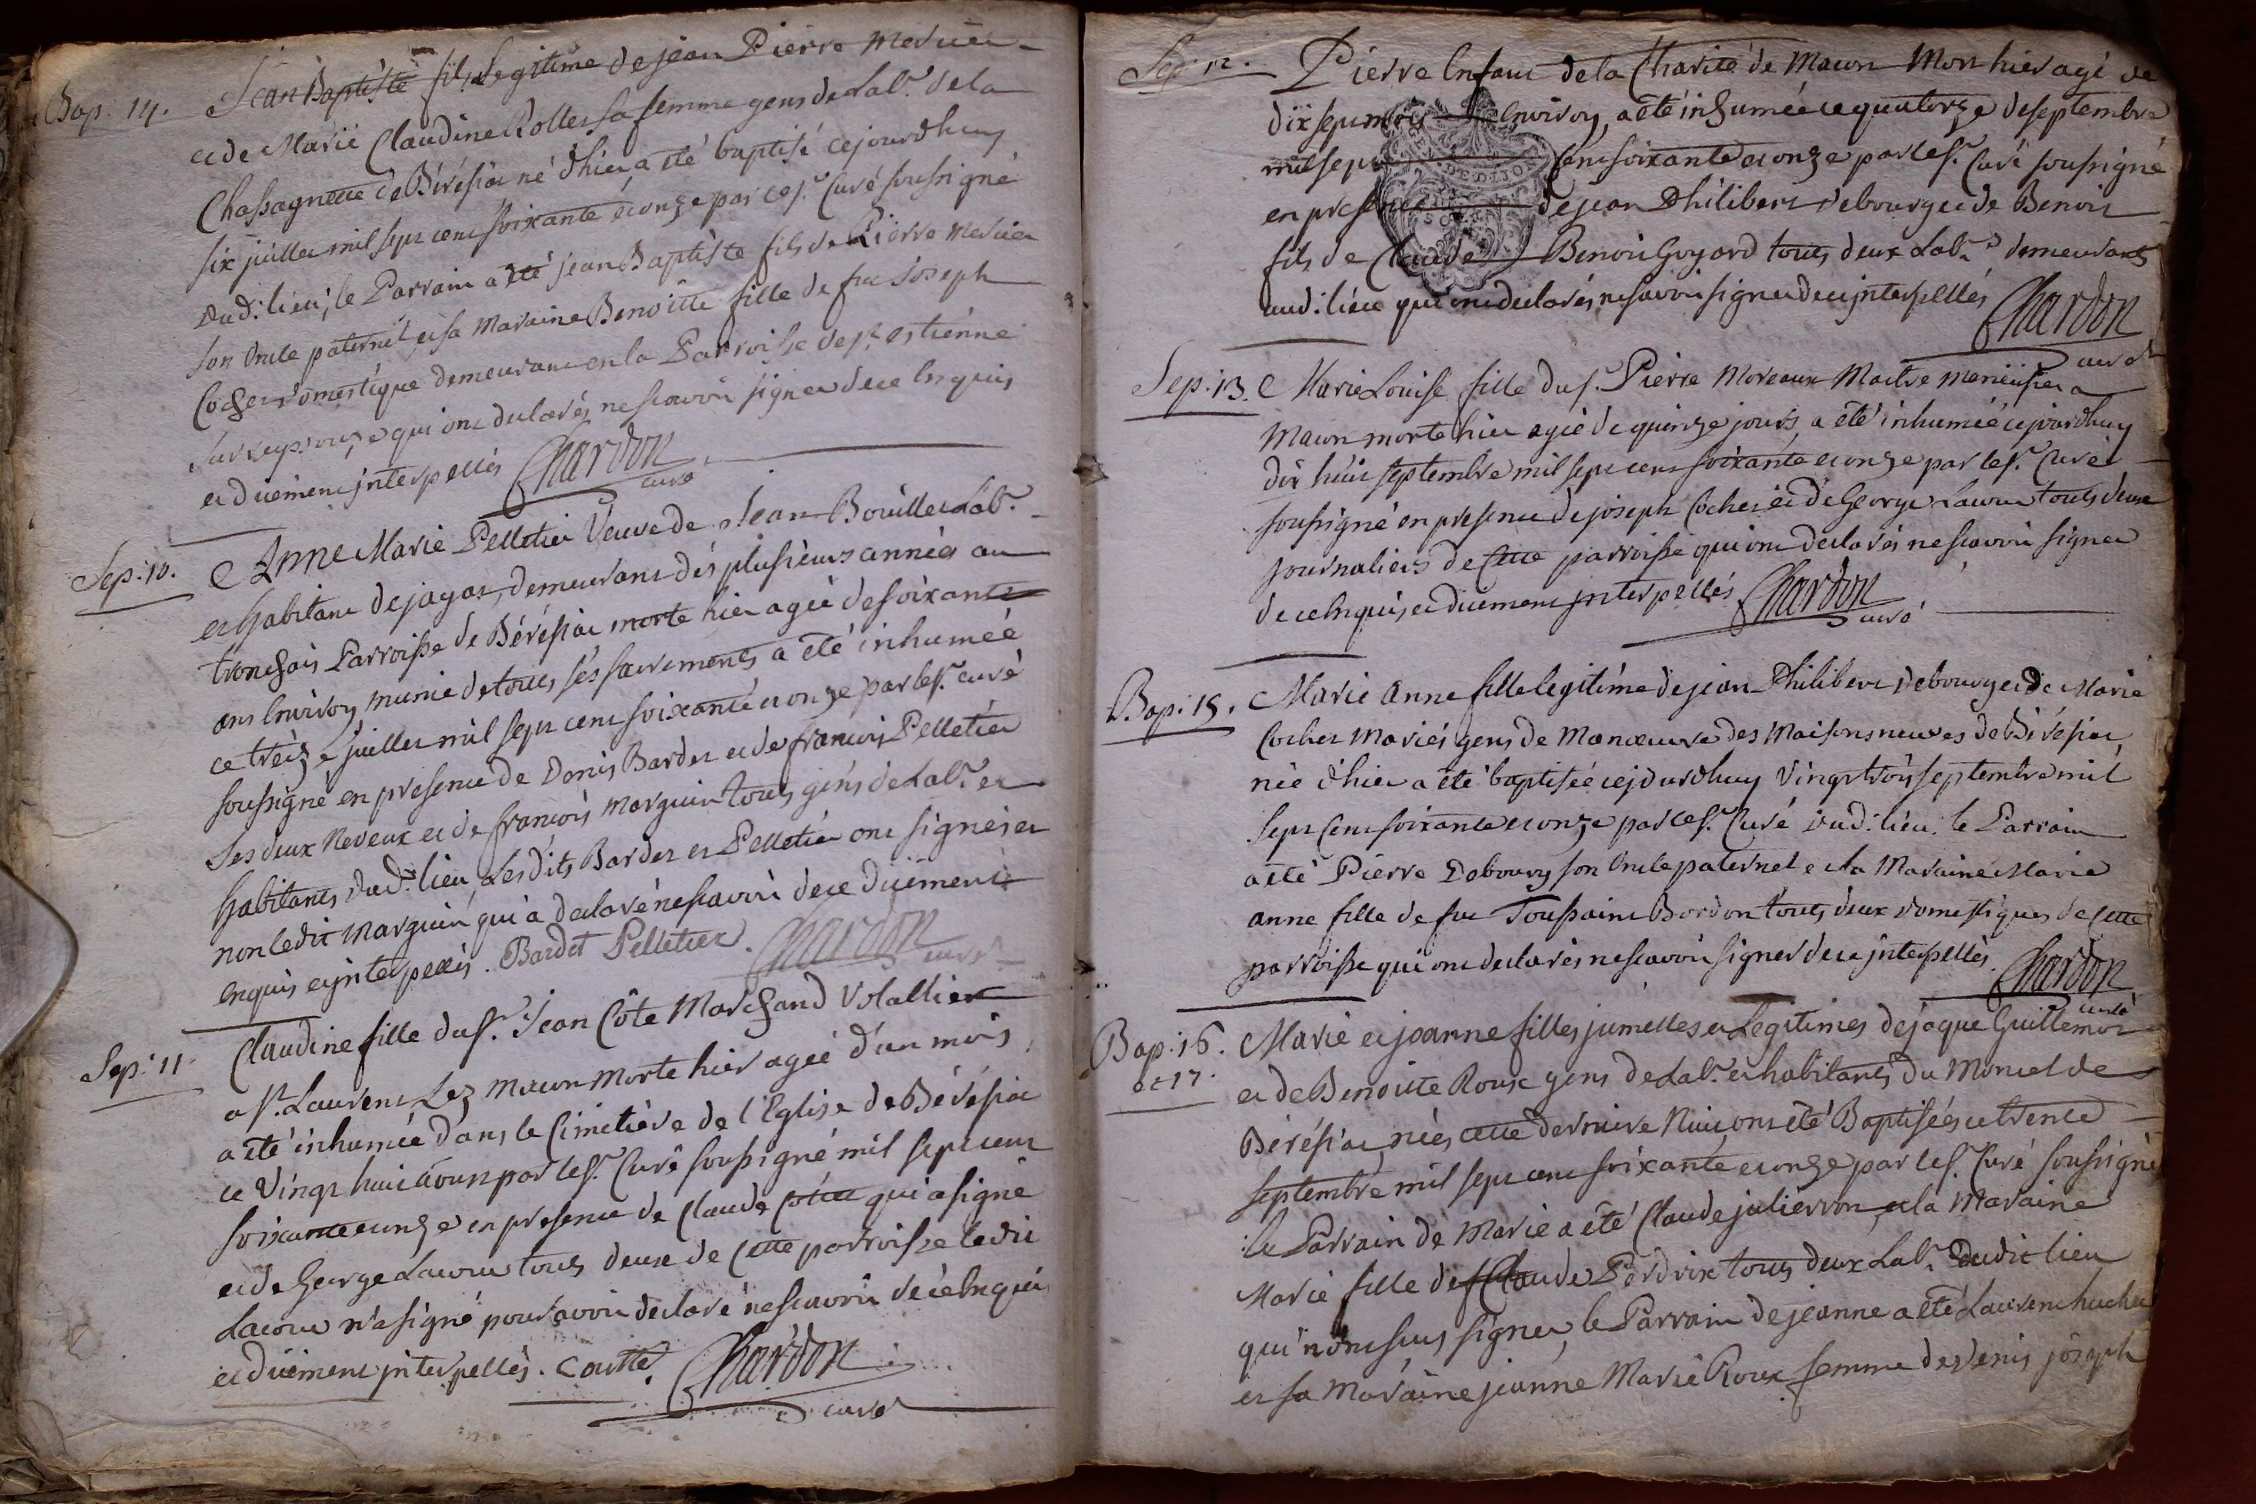 Bap. 14. Jean Baptiste fils Legitime de jean Pierre Mercier
et de Marie Claudine Rollet sa femme gens de Lab.r de la
Chassagnette de Bérésiat né d'hier a eté baptisé cejourdhuy
six juillet mil sept cent soixante et onze par le s.r Curé soussigné
dud: lieu, le Parrain a été jean Baptiste fils de Pierre Mercier
son oncle paternel et sa Maraine Benoitte fille de feu Joseph
Cochet domestique demeurant en la Parroisse de s.t estienne
sur reyssouze qui ont declarés ne scavoir signer de ce Enquis
et duement jnterpellés Chardon
curé
Sep: 10. Anne Marie Pelletier Veuve de Jean Bouillet Lab.r
et habitant de jayat, demeurant dès plusieurs années au
tronchais Parroisse de Bérésiat morte hier ageé de soixante
ans Environ munie de touts ses sacrements a eté inhumeé
ce treize juillet mil sept cent soixante et onze par le s.r curé
soussigné en presence de Denis Bardet et de francois Pelletier
ses deux Neveux et de francois Marguin touts gens de Lab.r et
habitants dud: lieu Lesdits Bardet et Pelletier ont signés et
non ledit Marguin qui a declaré ne scavoir de ce duement
enquis et jnterpellés. Bardet Pelletier. Chardon
curé
Sep: 11. Claudine fille du s.r Jean Côte Marchand Volallier
a s.t Laurent Lez Macon Morte hier ageé d'un mois,
a eté inhumeé dans le Cimetière de l'Eglise de Bérésiat
ce Vingt huit aoust par le s.r Curé soussigné mil sept cent
soixante et onze en presence de Claude Cotte qui a signé
et de George Lacour touts deux de Cette parroisse ledit
Lacour n'a signé pour avoir declaré ne scavoir de ce Enquis
et duement jnterpellés. Cotte. Chardon
curé
Sep: 12. Pierre Enfant de la Charité de Macon Mort hier agé de
dix sept mois Environ, a eté inhumée ce quatorze de septembre
mil sept cent soixante et onze par le s.r Curé soussigné
DE DIJON
en presence de jean Philibert debourg et de Benoit
fils de Claude Benoit Goyard touts deux Lab.rs demeurants
aud: lieu qui ont declarés ne savoir signer de ce jnterpellés
Chardon
curé
Sep: 13. Marie Louise fille du s.r Pierre Moreaux Maitre Menuisier a
Macon morte hier ageé de quinze jours, a été inhumeé cejourdhuy
dix huit septembre mil sept cent soixante et onze par le s.r Curé
soussigné en presence de joseph Cochet et de George Lacour touts deux
journaliers de Cette parroisse qui ont declarés ne scavoir signer
de ce Enquis et duement jnterpellés Chardon
curé
Bap: 15. Marie Anne fille legitime de jean Philibert debourg et de Marie
Cochet Mariés gens de Manoeuvre des Maisons neuves de Bérésiat
née d'hier a eté baptisée cejourdhuy Vingt trois septembre mil
sept Cent soixante et onze par le s.r Curé dud: lieu. le Parrain
a eté Pierre Debourg son Oncle paternel et la Maraine Marie
anne fille de feu Toussaint Bordon touts deux domestiques de Cette
parroisse qui ont declarés ne scavoir signer de ce jnterpellés.
Chardon
curé
Bap: 16. et 17. Marie et jeanne filles jumelles et Legitimes de jaque Guillemot
et de Benoitte Roux gens de Lab.r et habitants du Moncel de
Bérésiat, nées cette derniere Nuit ont eté Baptisées ce trente
septembre mil sept cent soixante et onze par le s.r Curé soussigné
le Parrain de Marie a eté Claude julierron et la Maraine
Marie fille de Claude Perdrix touts deux Lab.r dudit lieu
qui n'ont sçus signer, le Parrain de jeanne a eté Laurent huchet
et sa Maraine jeanne Marie Roux femme de denis joseph